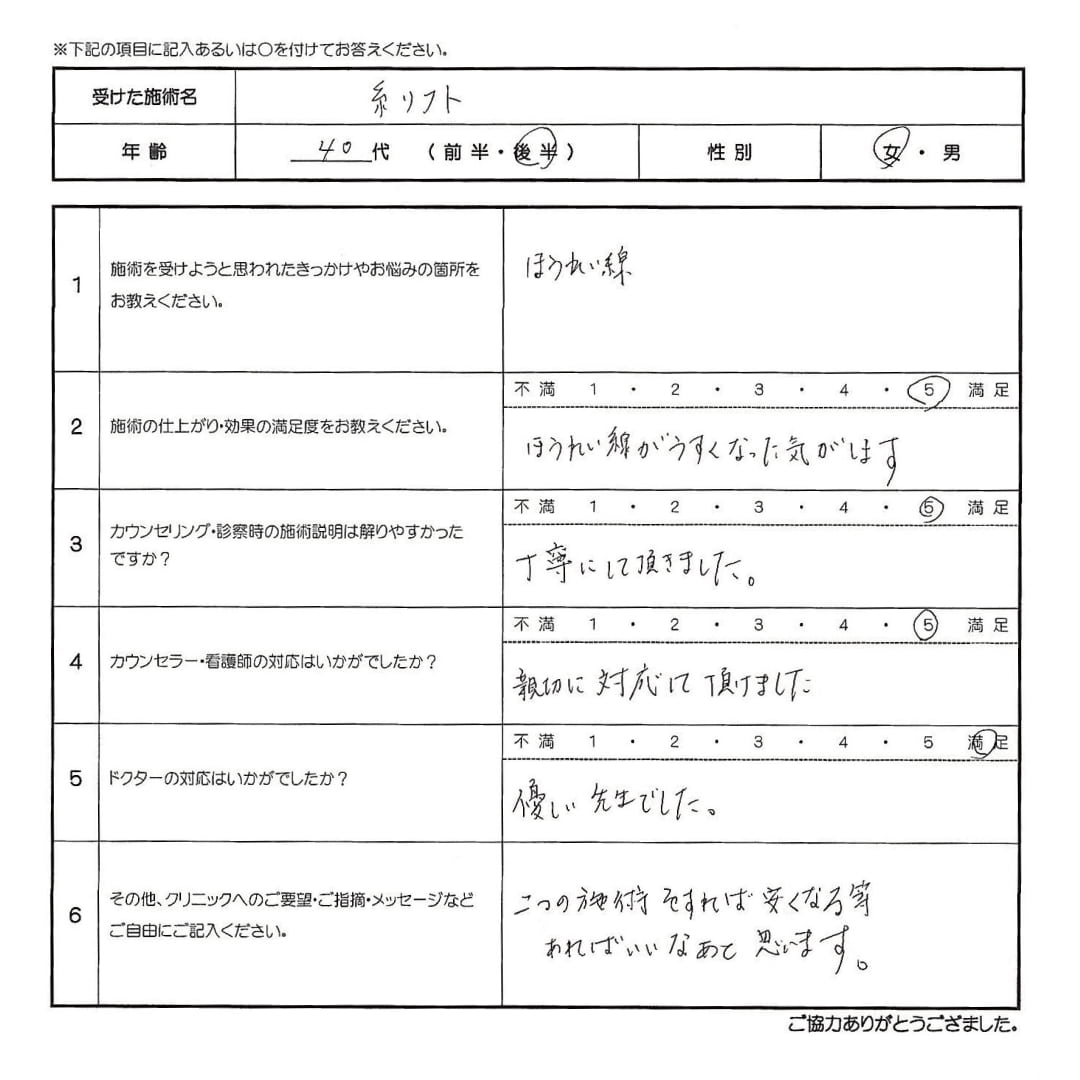 ※下記の項目に記入あるいは〇を付けてお答えください。
受けた施術名 糸リフト
年齢 40代 (前半・後半) 性別 女・男
1 施術を受けようと思われたきっかけやお悩みの箇所を
お教えください。
ほうれい線
2 施術の仕上がり・効果の満足度をお教えください。
不満 1 ・ 2 ・ 3 ・ 4 ・ 5 満足
ほうれい線がうすくなった気がします
3 カウンセリング・診察時の施術説明は解りやすかった
ですか?
不満 1 ・ 2 ・ 3 ・ 4 ・ 5 満足
丁寧にして頂きました。
4 カウンセラー・看護師の対応はいかがでしたか?
不満 1 ・ 2 ・ 3 ・ 4 ・ 5 満足
親切に対応して頂けました
5 ドクターの対応はいかがでしたか?
不満 1 ・ 2 ・ 3 ・ 4 ・ 5 満足
優しい先生でした。
6 その他、クリニックへのご要望・ご指摘・メッセージなど
ご自由にご記入ください。
二つの施術をすれば安くなる等
あればいいなあと思います。
ご協力ありがとうございました。